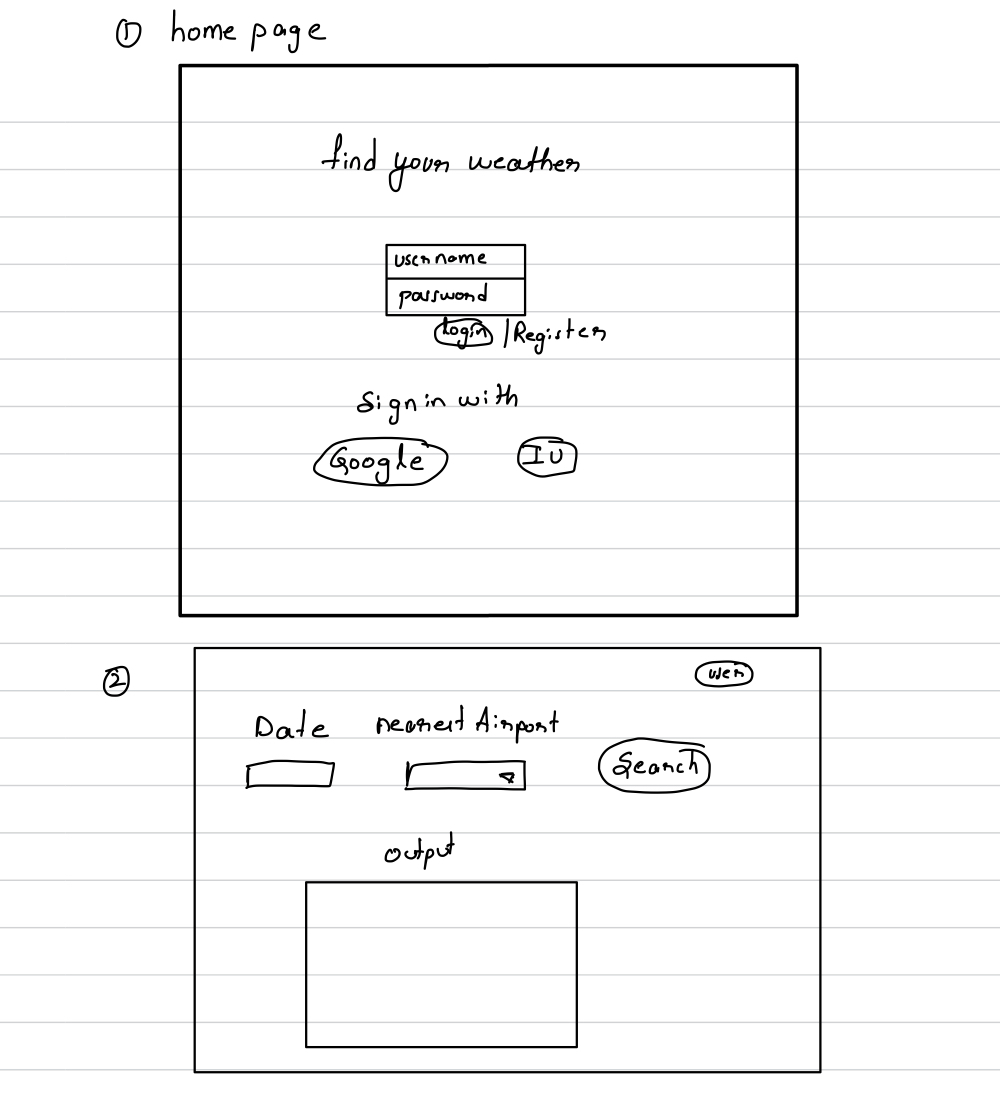 ① home page
find your weather
username
password
Login / Register
Sign in with
Google IU
②
user
Date nearest Airport
Search
output